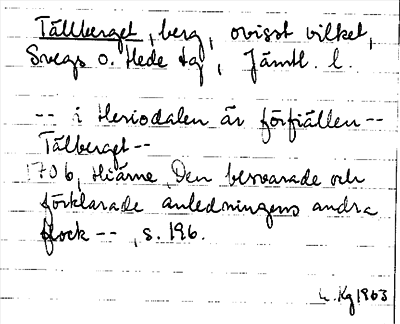 Tällberget, berg, ovisst vilket,
Svegs o. Hede tg, Jämtl. l.
-- i Heriodalen är förfiällen --
Tälberget --
1706, Hiärne, Den besvarade och
förklarade anledningens andra
flock --, s. 196.
L. Kg 1963